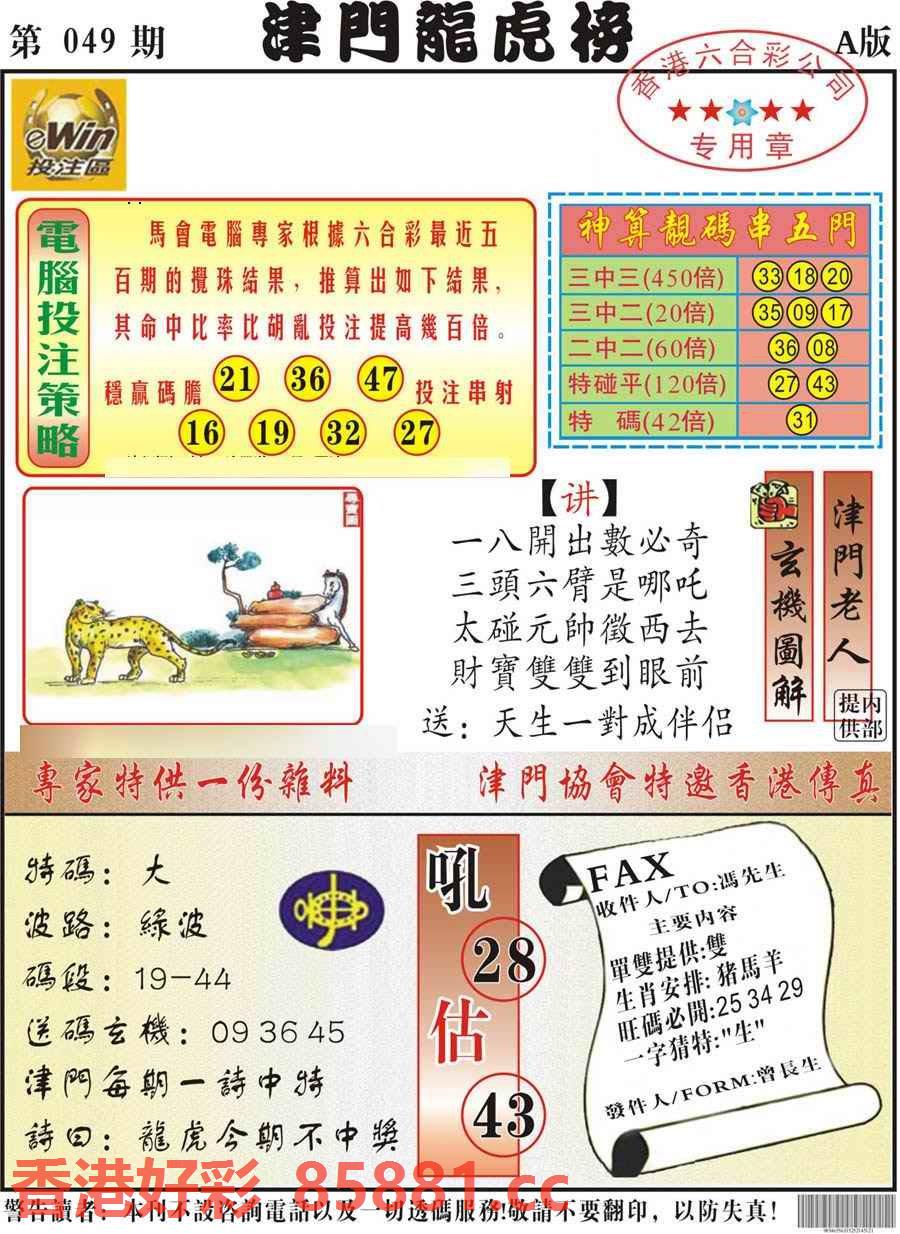 第 049 期
津門龍虎榜
A版
香港六合彩公司
★★★★
专用章
eWin
投注區
電腦投注策略
馬會電腦專家根據六合彩最近五
百期的攪珠結果，推算出如下結果，
其命中比率比胡亂投注提高幾百倍。
穩贏碼膽 21 36 47 投注串射
16 19 32 27
神算靚碼串五門
三中三(450倍) 33 18 20
三中二(20倍) 35 09 17
二中二(60倍) 36 08
特碰平(120倍) 27 43
特 碼(42倍) 31
【讲】
一八開出數必奇
三頭六臂是哪吒
太碰元帥徵西去
財寶雙雙到眼前
送：天生一對成伴侣
玄機圖解
津門老人
内部提供
專家特供一份雜料
津門協會特邀香港傳真
特碼：大
波路：綠波
碼段：19-44
送碼玄機：09 36 45
津門每期一詩中特
詩曰：龍虎今期不中獎
吼
28
估
43
FAX
收件人/TO:馮先生
主要内容
單雙提供:雙
生肖安排:猪馬羊
旺碼必開:25 34 29
一字猜特:"生"
發件人/FORM:曾長生
香港好彩 85881.cc
警告讀者：本刊不設咨詢電話以及一切透碼服務!敬請不要翻印，以防失真！